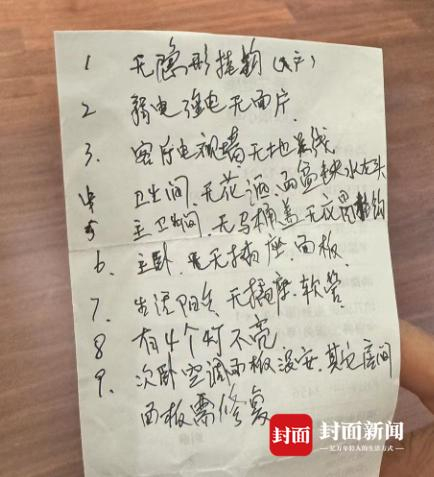 1 无隐形挂钩(入户)
2 弱电强电无面片.
3. 客厅电视墙无地
4 卫生间.无花洒.面盆缺水龙头
5 主卫生间,无马桶盖无衣
6、主卧.无插座.面板
7. 生活阳台.无插座.软管
8 有4个灯不亮
9. 次卧空调面板没安.其它房间
面板需修复
封面 封面新闻
亿万年轻人的生活方式